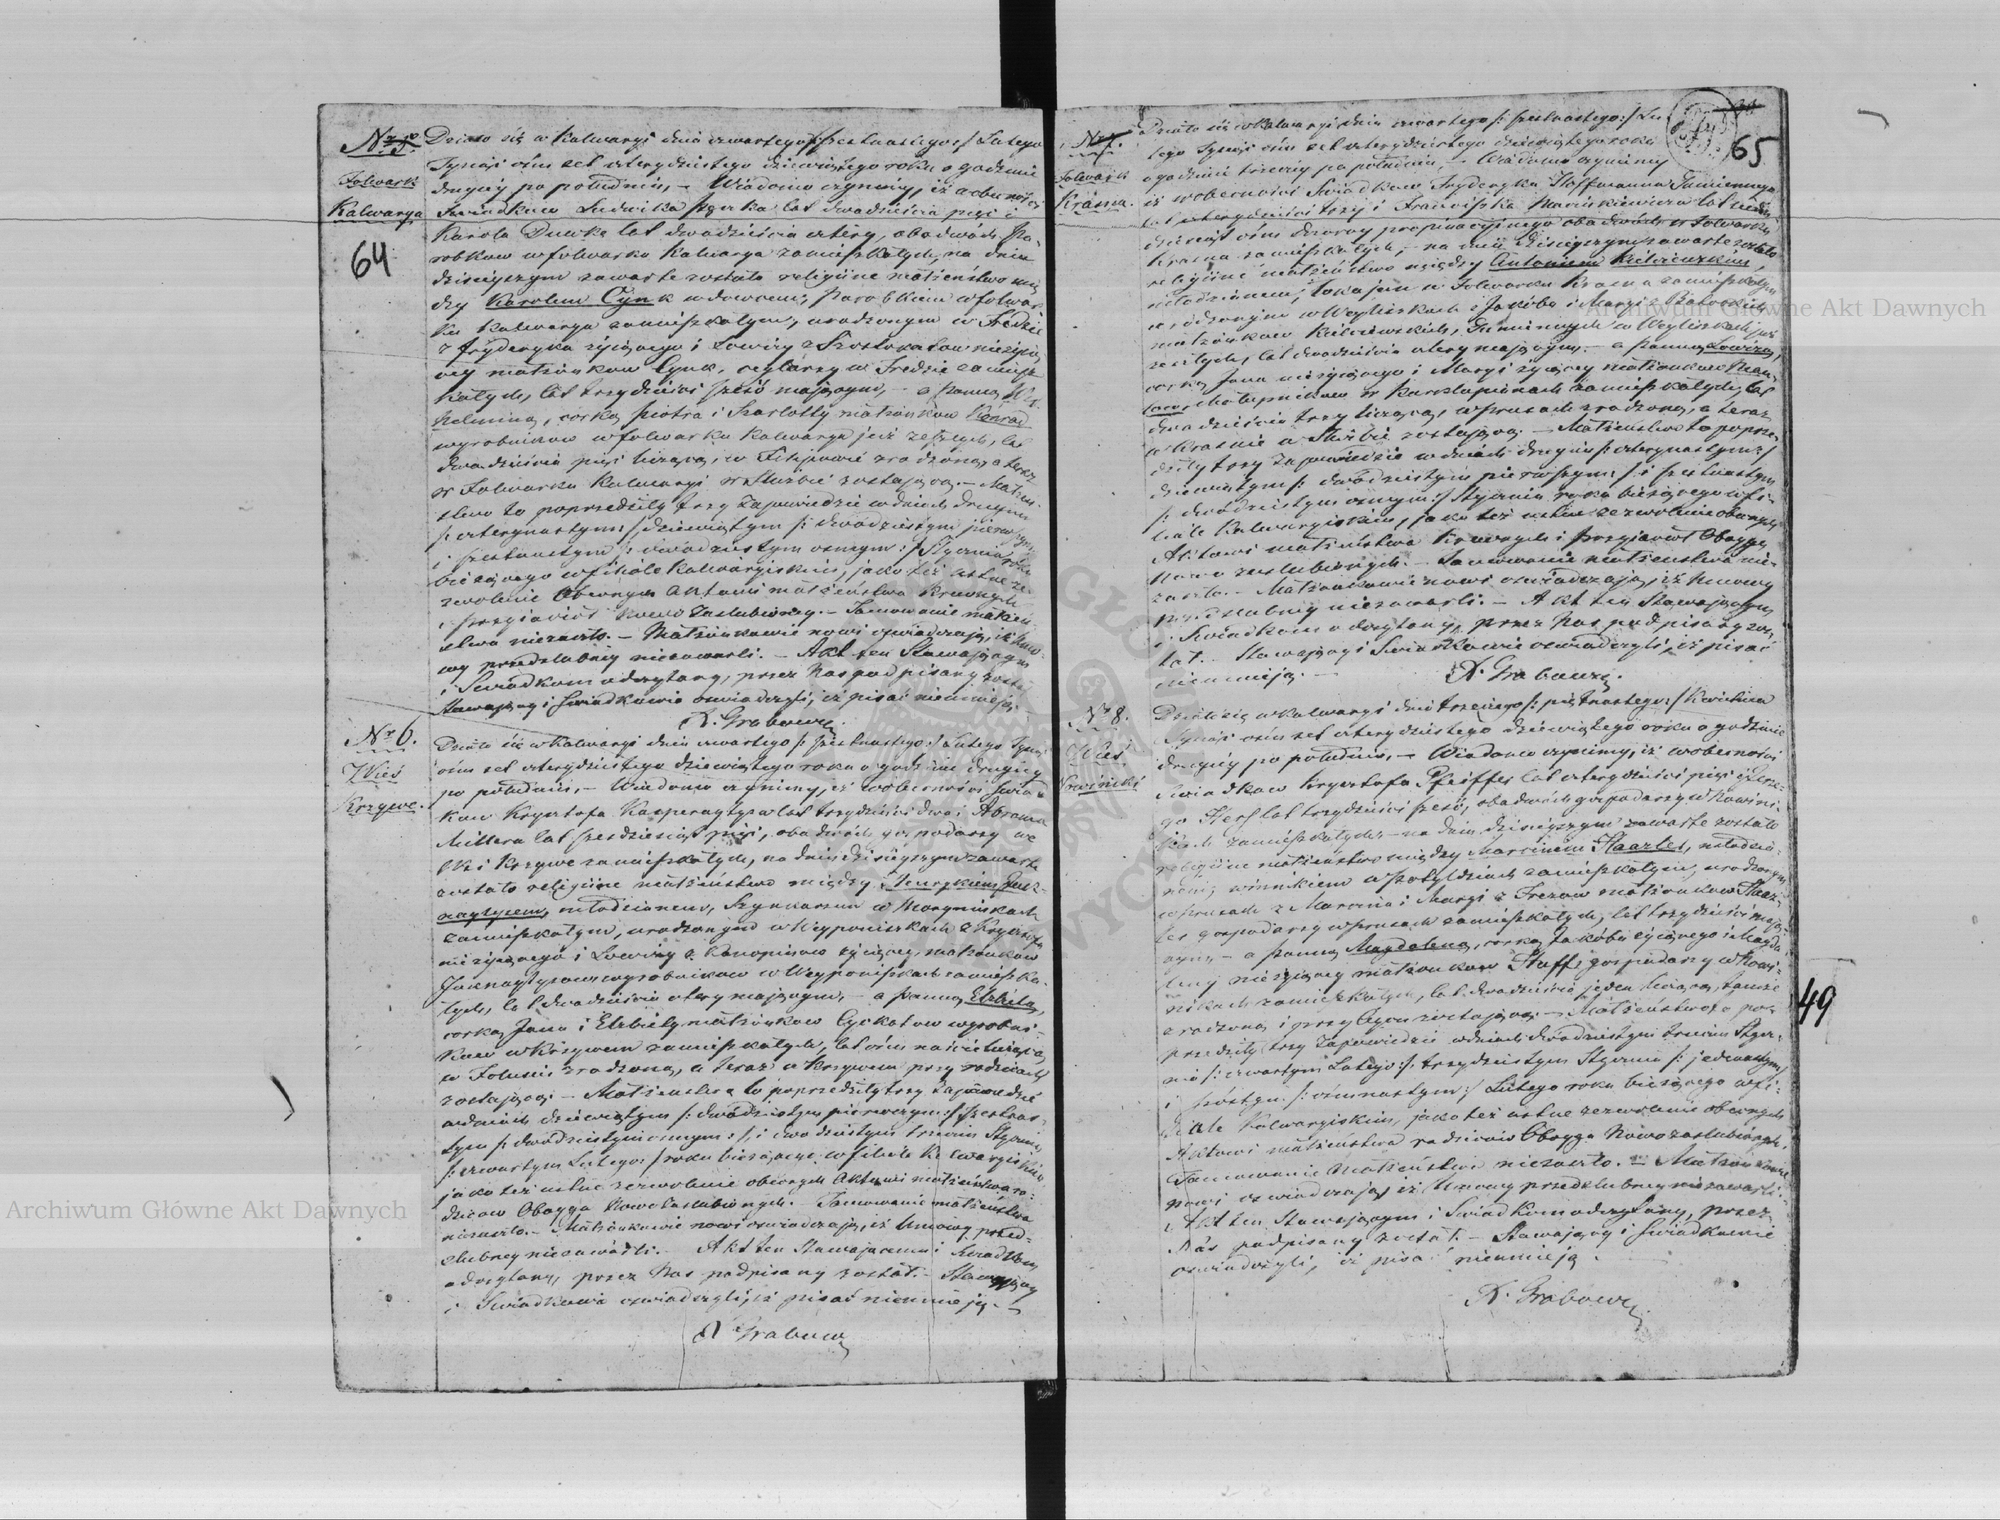 Nr 5.
Folwark
Kalwarya
64
Działo się w Kalwaryi dnia czwartego /: szesnastego :/ Lutego
Tysiąc ośm set czterdziestego dziewiątego roku o godzinie
drugiey po południu, – Wiadomo czynimy, iż w obecności
Świadkow Ludwika lat dwadzieścia pięć i
Karola lat dwadzieścia cztery, obadwóch Pa-
robkow w folwarku Kalwarya zamieszkałych, na dniu
dzisieyszym zawarte zostało religiine małżeństwo mię
dzy Karolem Cynk wdowcem, Parobkiem w folwar
ku Kalwarya zamieszkałym, urodzonym w Fredzie
z Fryderyka żyiącego i Lowizy z nieżyią
cey małżonkow Cynk, w Fredzie zamiesz
kałych, lat trzydzieści sześć maiącym, – a Panną Wil
helminą, corką Piotra i Szarlotty małżonkow Konrad
wyrobnikow w folwarku Kalwarya już zeszłych, lat
dwadzieścia pięć liczącą, w Filipowie zrodzoną, a teraz
w Folwarku Kalwaryi w służbie zostaiącą. – Małżeń
stwo to poprzedziły trzy Zapowiedzie w dniach drugim
/: czternastym :/ dziewiątym /: dwudziestym pierwszym
i szesnastym /: dwudziestym osmym :/ Stycznia roku
bieżącego w filiale Kalwaryiskim, jako też ustne ze
zwolenie Obecnych Aktowi małżeństwa Krewnych
i przyiaciół Nowo Zaslubionych. – Tamowanie małżeń
stwa niezaszło. – Małżonkowie nowi oświadczaią, iż Umo-
wy przedslubney niezawarli. – Akt ten Stawaiącym
i Świadkom odczytany, przez Nas podpisany został
Stawaiący i Świadkowie oświadczyli, iż pisać nieumieią. –
A. Grabow
Nr 6.
Wieś
Krzywe.
Działo się w Kalwaryi dnia czwartego /: szesnastego :/ Lutego Tysiąc
ośm set czterdziestego dziewiątego roku o godzinie drugiey
po południu, – Wiadomo czynimy, iż w obecności Świad
kow Krysztofa lat trzydzieści dwa i Abrama
Millera lat sześdziesiąt pięć, obadwóch gospodarzy we
Wsi Krzywe zamieszkałych, na dniu dzisieyszym zawarte
zostało religiine małżeństwo między Henrykiem
młodzianem, Szynkarzem w
zamieszkałym, urodzonym w Wyponiszkach z Krysztofa
nieżyiącego i Lowizy z żyiącey, małżonkow
wyrobnikow w Wyponiszkach zamieszka-
łych, lat dwadzieścia cztery maiącym, – a Panną Elzbietą,
corką Jana i Elzbiety małżonkow wyrobni-
kow w Krzywem zamieszkałych, lat ośmnaście liczącą
w Folusii zrodzoną, a teraz w Krzywem przy rodzicach
zostaiącą. – Małżeństwo to poprzedziły trzy Zapowiedzie
w dniach dziewiątym /: dwudziestym pierwszym :/ szesnas-
tym /: dwudziestym osmym :/, i dwudziestym trzecim Stycznia
/: czwartym Lutego :/ roku bieżącego w filiale Kalwaryiskim
jako też ustne zezwolenie obecnych Aktowi małżeństwa ro-
dzicow Oboyga Nowo Zaslubionych. – Tamowanie małżeństwa
niezaszło. – Małżonkowie nowi oświadczaią, iż Umowy przed-
slubney niezawarli. – Akt ten Stawaiącym i Świadkom
odczytany, przez Nas podpisany został. – Stawaiący
i Świadkowie oświadczyli, iż pisać nieumieią. –
A Grabow
65
Nr 7.
Folwark
Krasna.
Działo się w Kalwaryi dnia czwartego /: szesnastego :/ Lu
tego Tysiąc ośm set czterdziestego dziewiątego roku
o godzinie trzeciey po południu, – Wiadomo czynimy
iż w obecności Świadkow Fryderyka Hoffmanna
lat czterdzieści trzy i Franciszka Marcinkiewicza lat
dziesiąt ośm dozorcy propinacyinego obadwóch w Folwarku
Krasna zamieszkałych, – na dniu dzisieyszym zawarte zostało
religiine małżeństwo między Antonim
młodzianem, Lokaiem w Folwarku Krasna zamieszkałym
urodzonym w Wegliszkach z Jakóba i Maryi z
małżonkow w Wegliszkach już
zeszłych, lat dwadzieścia cztery maiącym. – a Panną Lowizą,
corką Jana nieżyiącego i Maryi żyiącey małżonkow
w zamieszkałych, lat
dwadzieścia trzy liczącą, w Prusach zrodzoną, a teraz
w Krasnie w Służbie zostaiącą. – Małżeństwo to poprze-
dziły trzy Zapowiedzie w dniach drugim /: czternastym :/
dziewiątym /: dwudziestym pierwszym :/ i szesnastym
/: dwudziestym osmym :/ Stycznia roku bieżącego w fi-
liale Kalwaryiskim, jako też ustne zezwolenie obecnych
Aktowi małżeństwa Krewnych i przyiaciół Oboyga
Nowo zaslubionych. – Tamowanie małżeństwa nie-
zaszło. – Małżonkowie nowi oświadczaią, iż Umowy
przedslubney niezawarli. – Akt ten Stawaiącym
i Świadkom odczytany, przez Nas podpisany zos-
tał. – Stawaiący i Świadkowie oświadczyli, iż pisać
nieumieią. –
A. Grabow
Nr 8.
Wieś
Działo się w Kalwaryi dnia trzeciego /: piętnastego :/ Kwietnia
Tysiąc ośm set czterdziestego dziewiątego roku o godzinie
drugiey po południu, – Wiadomo czynimy, iż w obecności
Świadkow Krysztofa Pfeiffer lat czterdzieści pięć i
lat trzydzieści sześć, obadwóch gospodarzy w
zamieszkałych, – na dniu dzisieyszym zawarte zostało
religiine małżeństwo między Marcinem młodzia-
nem, w zamieszkałym, urodzonym
w Prusach z Marcina i Maryi z małżonkow
gospodarzy w Prusach zamieszkałych, lat trzydzieści maią-
cym, – a Panną Magdaleną, corką Jakóba żyiącego i Magda
leny nieżyiącey małżonkow gospodarzy w
zamieszkałych, lat dwadzieścia jeden liczącą, tamże
zrodzoną i przy Oycu zostaiącą. – Małżeństwo to po-
przedziły trzy Zapowiedzie w dniach dwudziestym trzecim Stycz-
nia /: czwartym Lutego :/ trzydziestym Stycznia /: jedenastym
i szóstym /: ośmnastym :/ Lutego roku bieżącego w fi-
liale Kalwaryiskim, jako też ustne zezwolenie obecnych
Aktowi małżeństwa rodziców Oboyga Nowo zaslubionych.
Tamowanie Małżeństwa niezaszło. – Małżonkowie
nowi oświadczaią, iż Umowy przedslubney niezawarli.
Akt ten Stawaiącym i Świadkom odczytany, przez
Nas podpisany został. – Stawaiący i Świadkowie
oświadczyli, iż pisać nieumieią.
A. Grabow
49
Archiwum Główne Akt Dawnych
Archiwum Główne Akt Dawnych